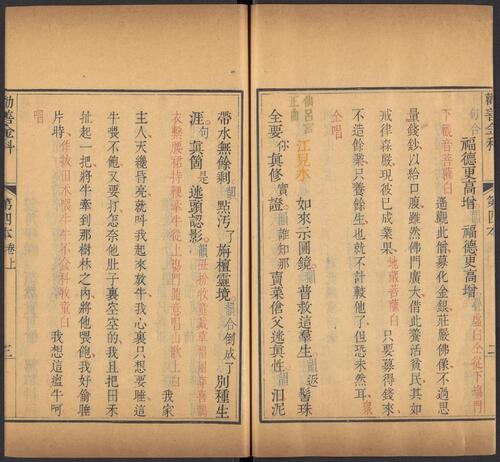 勸善金科
第四本
二
福德更高增
福德更高增
下觀音菩薩白
遙觀此僧募化金銀莊嚴佛像不過思
量錢鈔以給口腹雖然佛門廣大借此養活貧民其如
戒律森嚴現彼已成業果
地藏菩薩白
只要募得錢來
不造餘業只養餘生也就不計較他了但恐未然耳
仝唱
仙呂宮正曲
江兒水
如來示圓鏡
韻
普救這羣生
韻
返
髻珠
全要
你
眞修實證
韻
誰知那
賣菜傖父迷眞性
韻
汨泥
帶水無餘剩
韻
點汚了
旃檀靈境
韻
合
倒成了
別種生
涯
句
眞箇
是
迷頭認影
韻
衣繫腰裙持鞭牽牛從上場門
山歌上白
我家
主人天纔昏亮就呌我起來放牛我心裏只想要睡這
牛喂不飽又要打怎奈他肚子裏空空的我且把田禾
扯起一把將牛牽到那樹林之內將他喂飽我好偷睡
片時
作執田禾喂牛牛不食科牧童白
我想這瘟牛呵
唱
勸善金科
第四本卷上
三